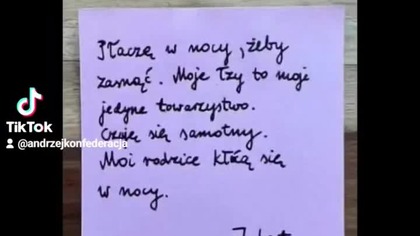 Płaczę w nocy, żeby
zasnąć. Moje łzy to moje
jedyne towarzystwo.
Czuję się samotny.
Moi rodzice kłócą się
w nocy.
TikTok
@andrzejkonfederacja